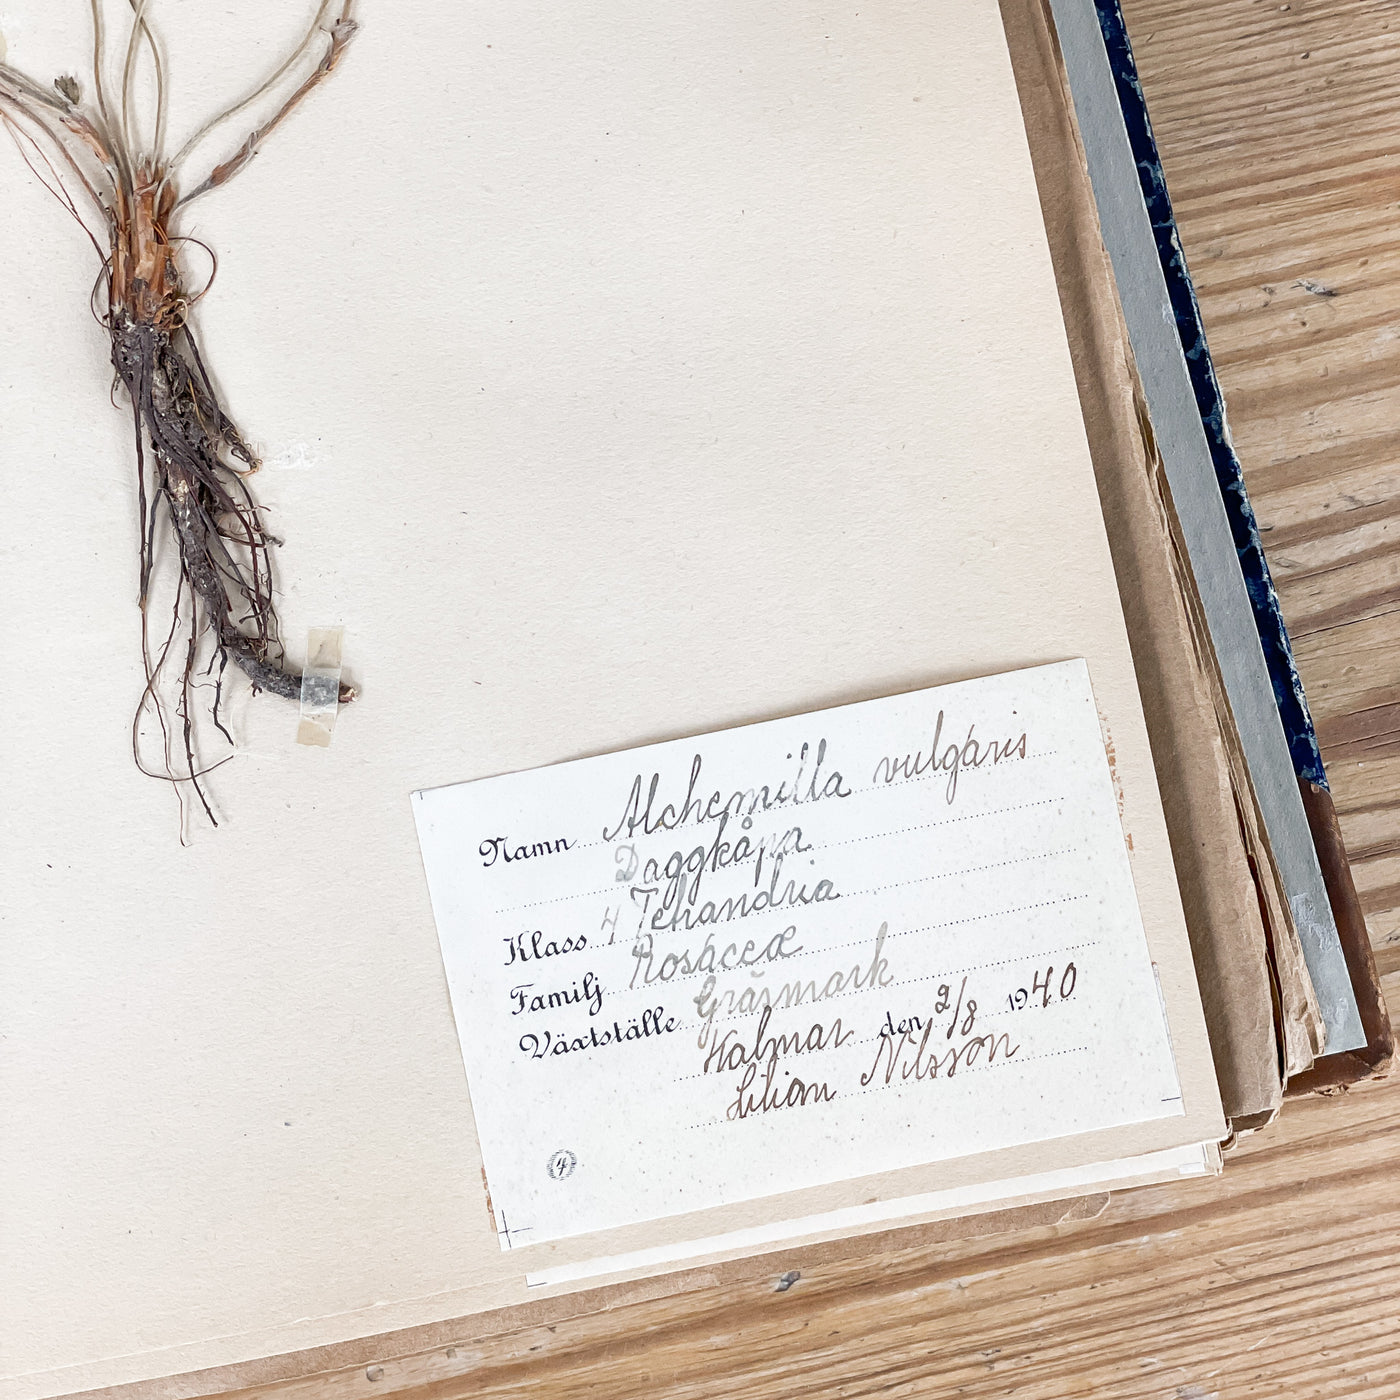 Namn Alchemilla vulgáris
Daggkåpa
Klass 4 Tetrandria
Familj Rosáceæ
Växtställe Gräsmark
Kalmar den 2/8 1940
Lilian Nilsson
4